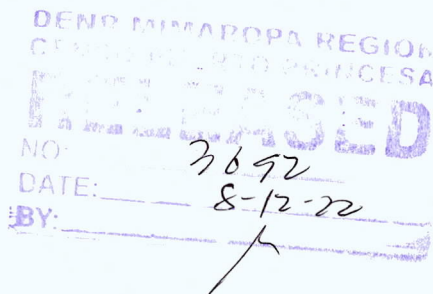 DENR MIMAROPA REGION
CENRO PUERTO PRINCESA
RELEASED
NO: 3692
DATE: 8-12-22
BY: